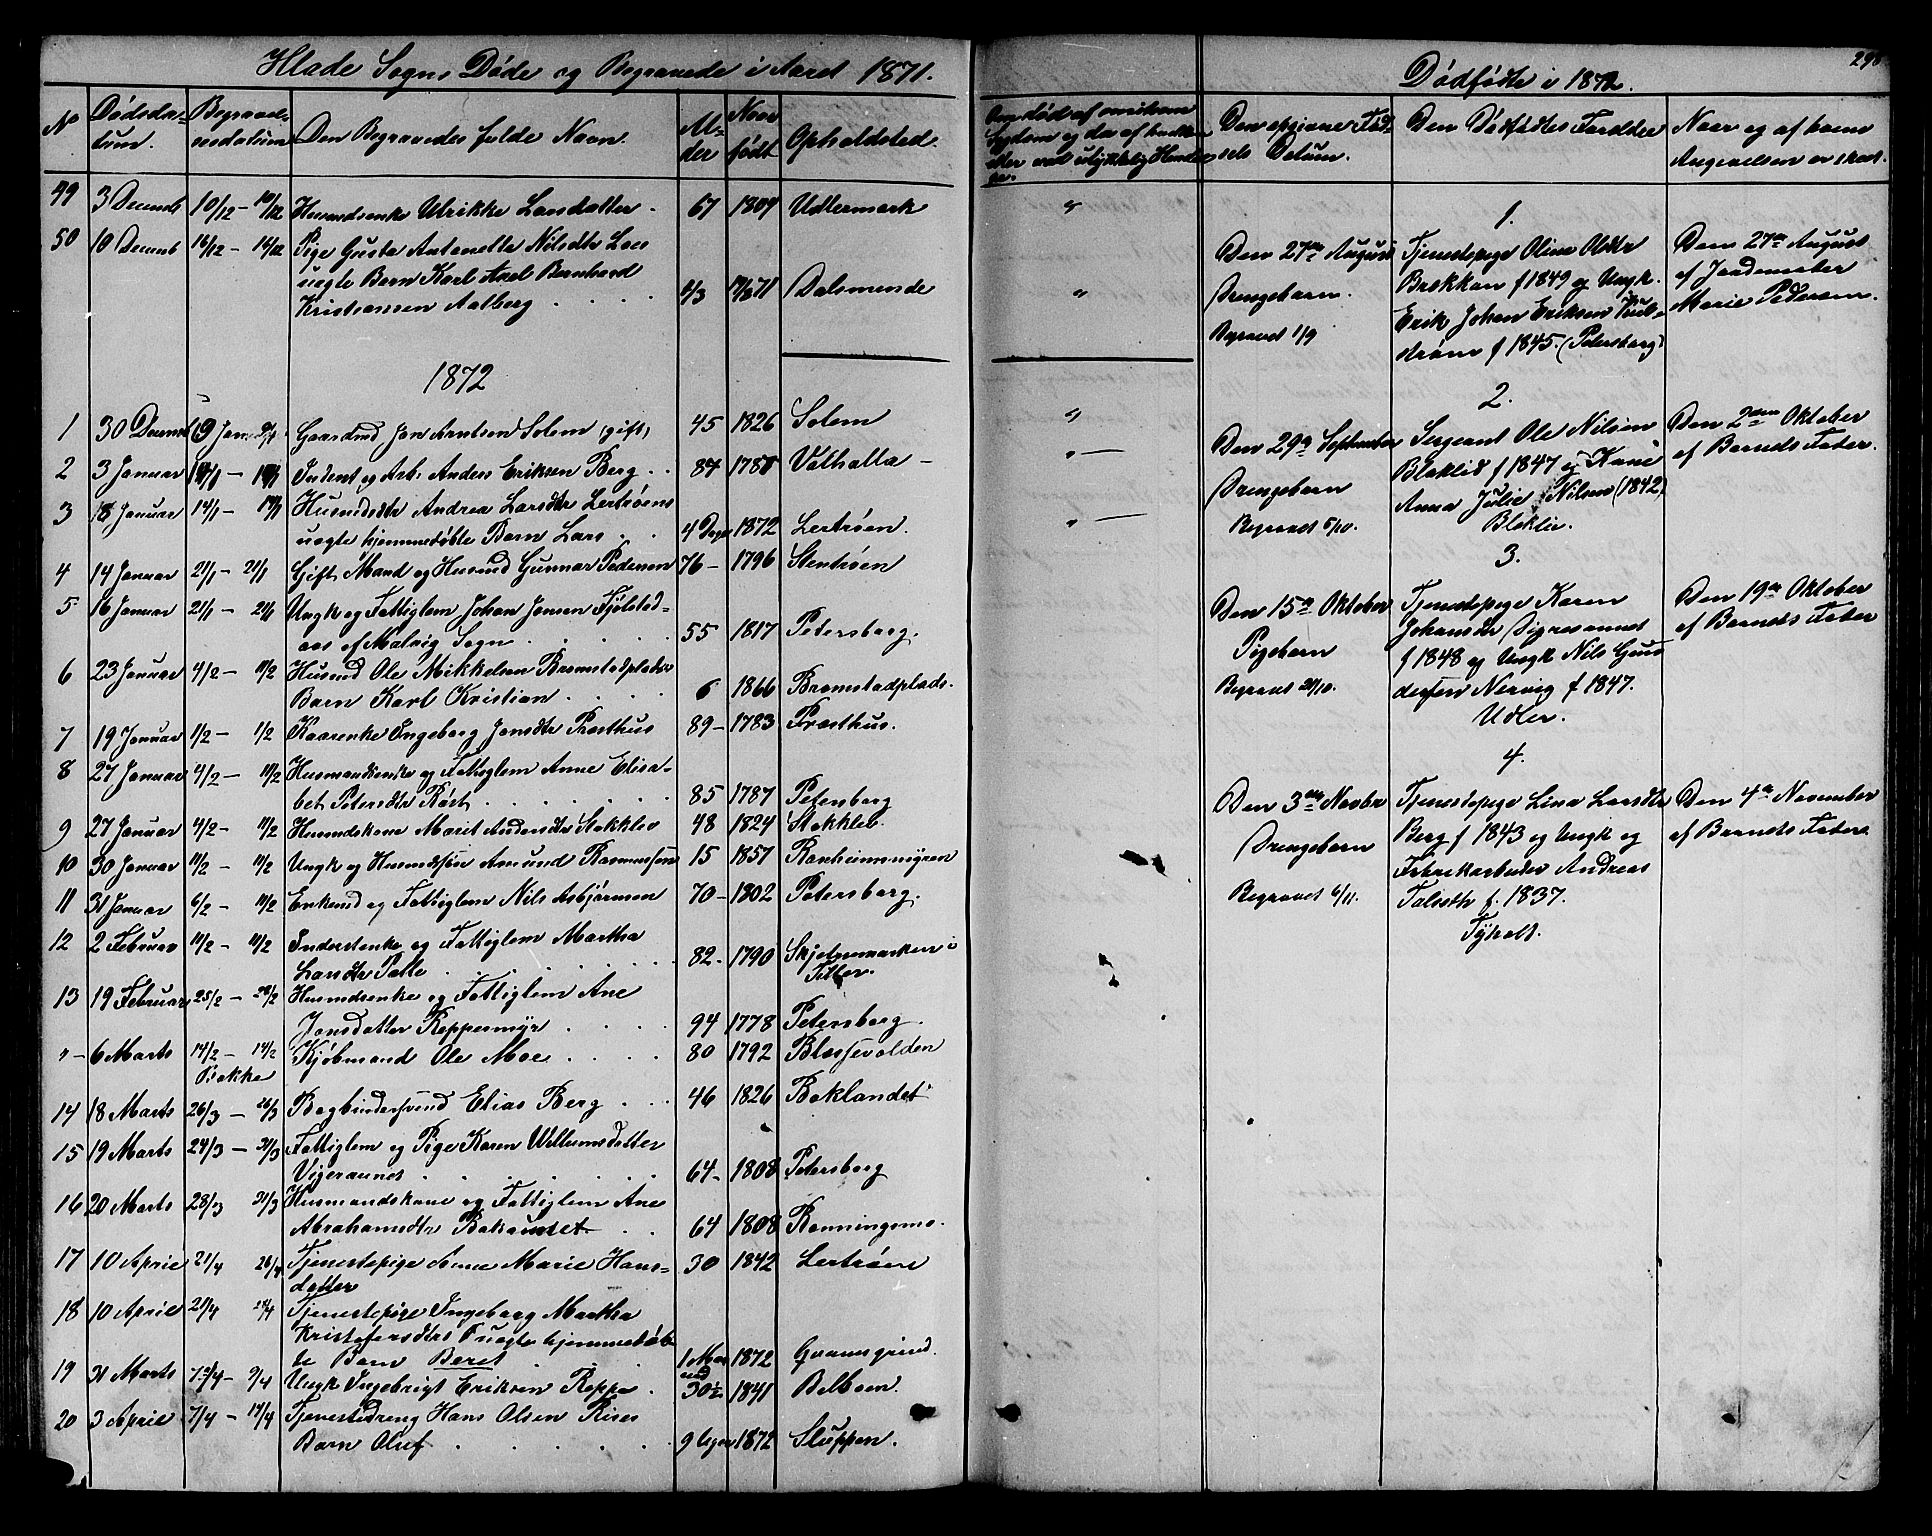 Hlade Sogns Døde og Begravede i Aaret 1871.
No
Dødsda-
tum.
Begravel-
sesdatum
Den Begravedes fulde Navn.
Al-
der
Naar
født
Opholdsted.
49 3 Decemb 10/12 – 10/12 Husmdsenke Ulrikke Larsdatter . 67 1804 Udlermark
50 10 Decemb 16/12 – 16/12 Pige Gusta Antonette Nilsdtr Laos
uægte Barn Karl Axel Bernhard
Kristiansen Aalberg . . . . 1871 Dalsmunde
1872
1 30 Decemb Gaardmd Jon Arntsen Solem (gift) 45 1826 Solem
2 3 Januar Inderst og Arb. Anders Eriksen Berg . . 84 Valhalla –
3 18 Januar 14/1 – Husmdsdtr Andrea Larsdtr Lertrøens
uægte hjemmedøbte Barn Lars . . 4 Dage 1872 Lertrøen.
4 14 Januar 21/1 – 21/1 Gift Mand og Husmd Gunnar Pedersen 76 – 1796 Stentrøen
5 16 Januar 21/1 – 21/1 Ungk og Fattiglem Johan Jonsen Fjølstad-
aas af Malvig Sogn . . . . . 55 1817 Petersborg.
6 23 Januar 4/2 – 11/2 Husmd Ole Mikkelsen Bromstadplads
Barn Karl Kristian . . . . 6 1866 Bromstadplads.
7 19 Januar 1/2 – 1/2 Kaarenke Ingeborg Jonsdtr Presthus 89 – 1783 Presthus.
8 27 Januar 4/2 – 11/2 Husmandsenke og Fattiglem Anne Elisa-
bet Petersdtr Røst . . . . . . 85 1787 Petersborg
9 27 Januar 4/2 – 11/2 Husmdskone Marit Andersdtr Stokklev 48 1824 Stokkleb.
10 30 Januar 11/2 – 11/2 Ungk og Husmdssøn Amund Rasmussen 15 1857 Ranheimsmyren
11 31 Januar 6/2 – 11/2 Enkemd og Fattiglem Nils Asbjørnsen 70 – 1802 Petersborg.
12 2 Februar 11/2 – 11/2 Inderstenke og Fattiglem Martha
Larsdtr Palle . . . . . . 82 – 1790 Skjetnemarken i
Tiller.
13 19 Februar 25/2 – 25/2 Husmdsenke og Fattiglem Ane
Jonsdatter Reppesmyr . . . . 94 1778 Petersborg.
" – 6 Marts 14/2 – 14/2 Kjøbmand Ole Moe . . . . 80 1792 Blæssevolden
Bakke
14 18 Marts 26/3 – 26/3 Bogbindersvend Elias Berg . . . 46 1826 Baklandet
15 19 Marts 24/3 – 31/3 Fattiglem og Pige Karen Willumsdatter
Vigeraunet . . . . . . 64 – 1808 Petersborg
16 20 Marts 28/3 31/3 Husmandskone og Fattiglem Ane
Abrahamsdtr Bakaunet . . 64 1808 Ronningsmo.
17 10 April 21/4 26/4 Tjenestepige Anne Marie Hans-
datter 30 1842 Lertrøen
18 10 April 21/4 Tjenestepige Ingeborg Martha
Kristofersdtrs uægte hjemmedøb-
te Barn Beret . . . 1 Maaned 1872 Granesgrind.
19 31 Marts Ungk Ingebrigt Eriksen Reppe . 30½ 1841 Belboen.
20 3 April 7/4 – 14/4 Tjenestedreng Hans Olsen Rises
Barn Oluf . . . . . . 9 Uger 1872 Sluppen.
298
Dødfødte i 1872.
Om død af smitsom
Sygdom og da af hvilken
eller ved ulykkelig Hændel-
se.
Den opgivne Fød-
sels Datum.
Den Dødfødtes Forældre
Naar og af hvem
Angivelsen er skeet.
1.
Den 27de August
Drengebarn.
Begravet 1/9
Tjenestepige Oline Olsdtr
Brækkan f 1849 og Ungk.
Erik Johan Eriksen
strøm f 1845. (Petersborg)
Den 27de August
af Jordemoder
Marie Pedersen.
2.
Den 29de September
Drengebarn
Begravet 5/10.
Sergeant Ole Nilsen
Bloklid f 1847 og Kone
Anna Julie Nilsen (1842)
Bloklir.
Den 2den Oktober
af Barnets Fader.
3.
Den 15de Oktober
Pigebarn
Begravet 20/10.
Tjenestepige Karen
Johansdtr Digresaunet
f 1848 og Ungk Nils Gun
dersen Nervig f 1847.
Udler.
Den 19de Oktober
af Barnets Fader
4.
Den 3die Novbr
Drengebarn
Begravet 6/11.
Tjenestepige Lina Larsdtr
Berg f 1843 og Ungk og
Fabrikarbeider Andreas
Talseth f. 1837.
Tyholt.
Den 4de November
af Barnets Fader.